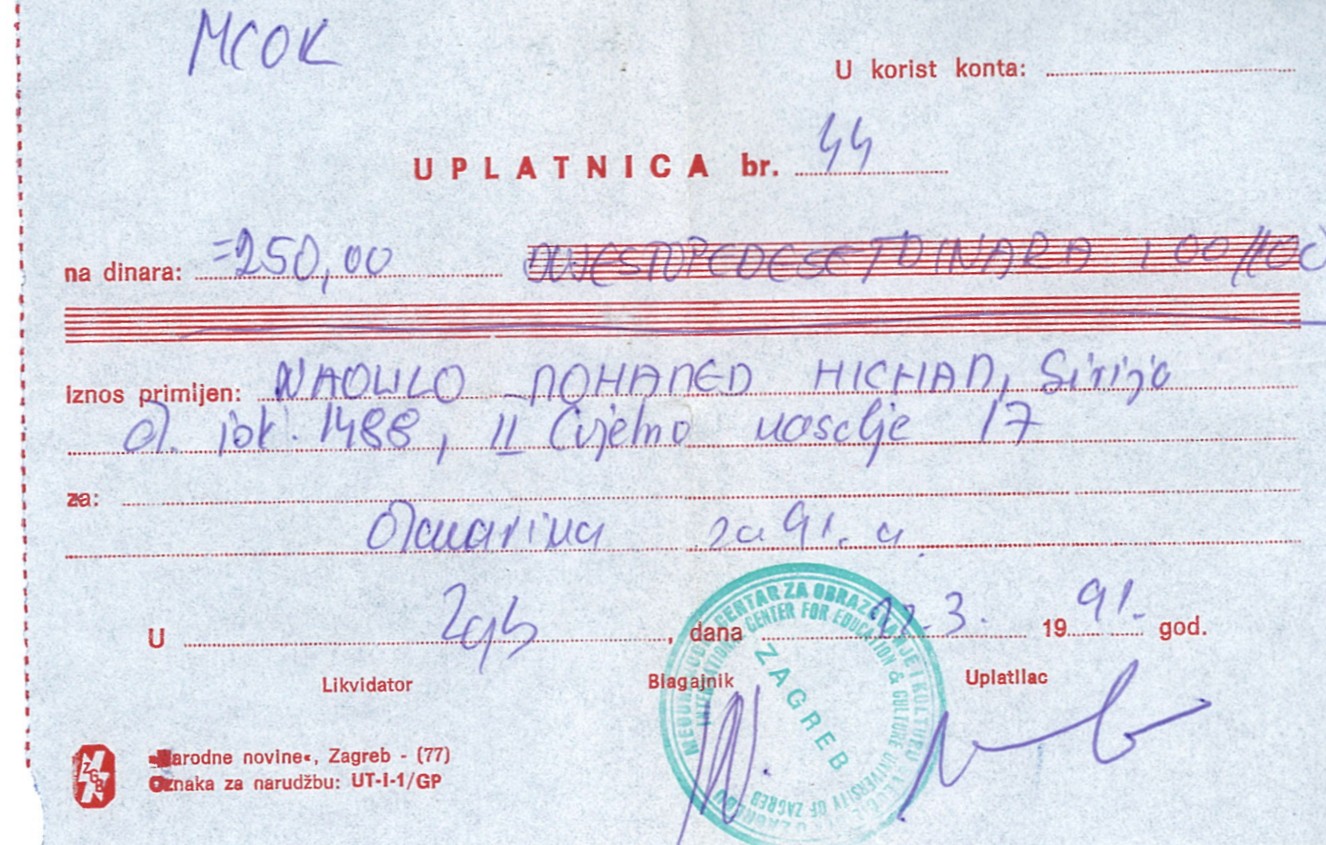 MCOK
U korist konta:
UPLATNICA br. 44
na dinara: =250,00 DVJESTOPEDESET DINARA I 00/100
iznos primljen: NAOULO MOHAMED HICHAM, Sirija
jok. 1488, II Cvjetno naselje 17
za:
članarina za 91. g.
U Zgb, dana 22.3. 1991. god.
Likvidator Blagajnik Uplatilac
MEĐUNARODNI CENTAR ZA OBRAZOVANJE I KULTURU
INTERNATIONAL CENTER FOR EDUCATION & CULTURE UNIVERSITY OF ZAGREB
ZAGREB
ZGB
»Narodne novine«, Zagreb - (77)
Oznaka za narudžbu: UT-I-1/GP